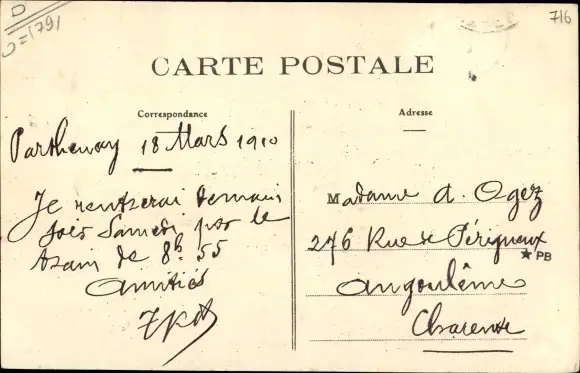 D
D=1791
716
CARTE POSTALE
Correspondance
Adresse
Parthenay 18 Mars 1910
Je rentrerai demain
soir Samedi par le
train de 8h 55
Amitiés
Madame A. Ogez
276 Rue de Périgueux
★ PB
Angoulême
Charente